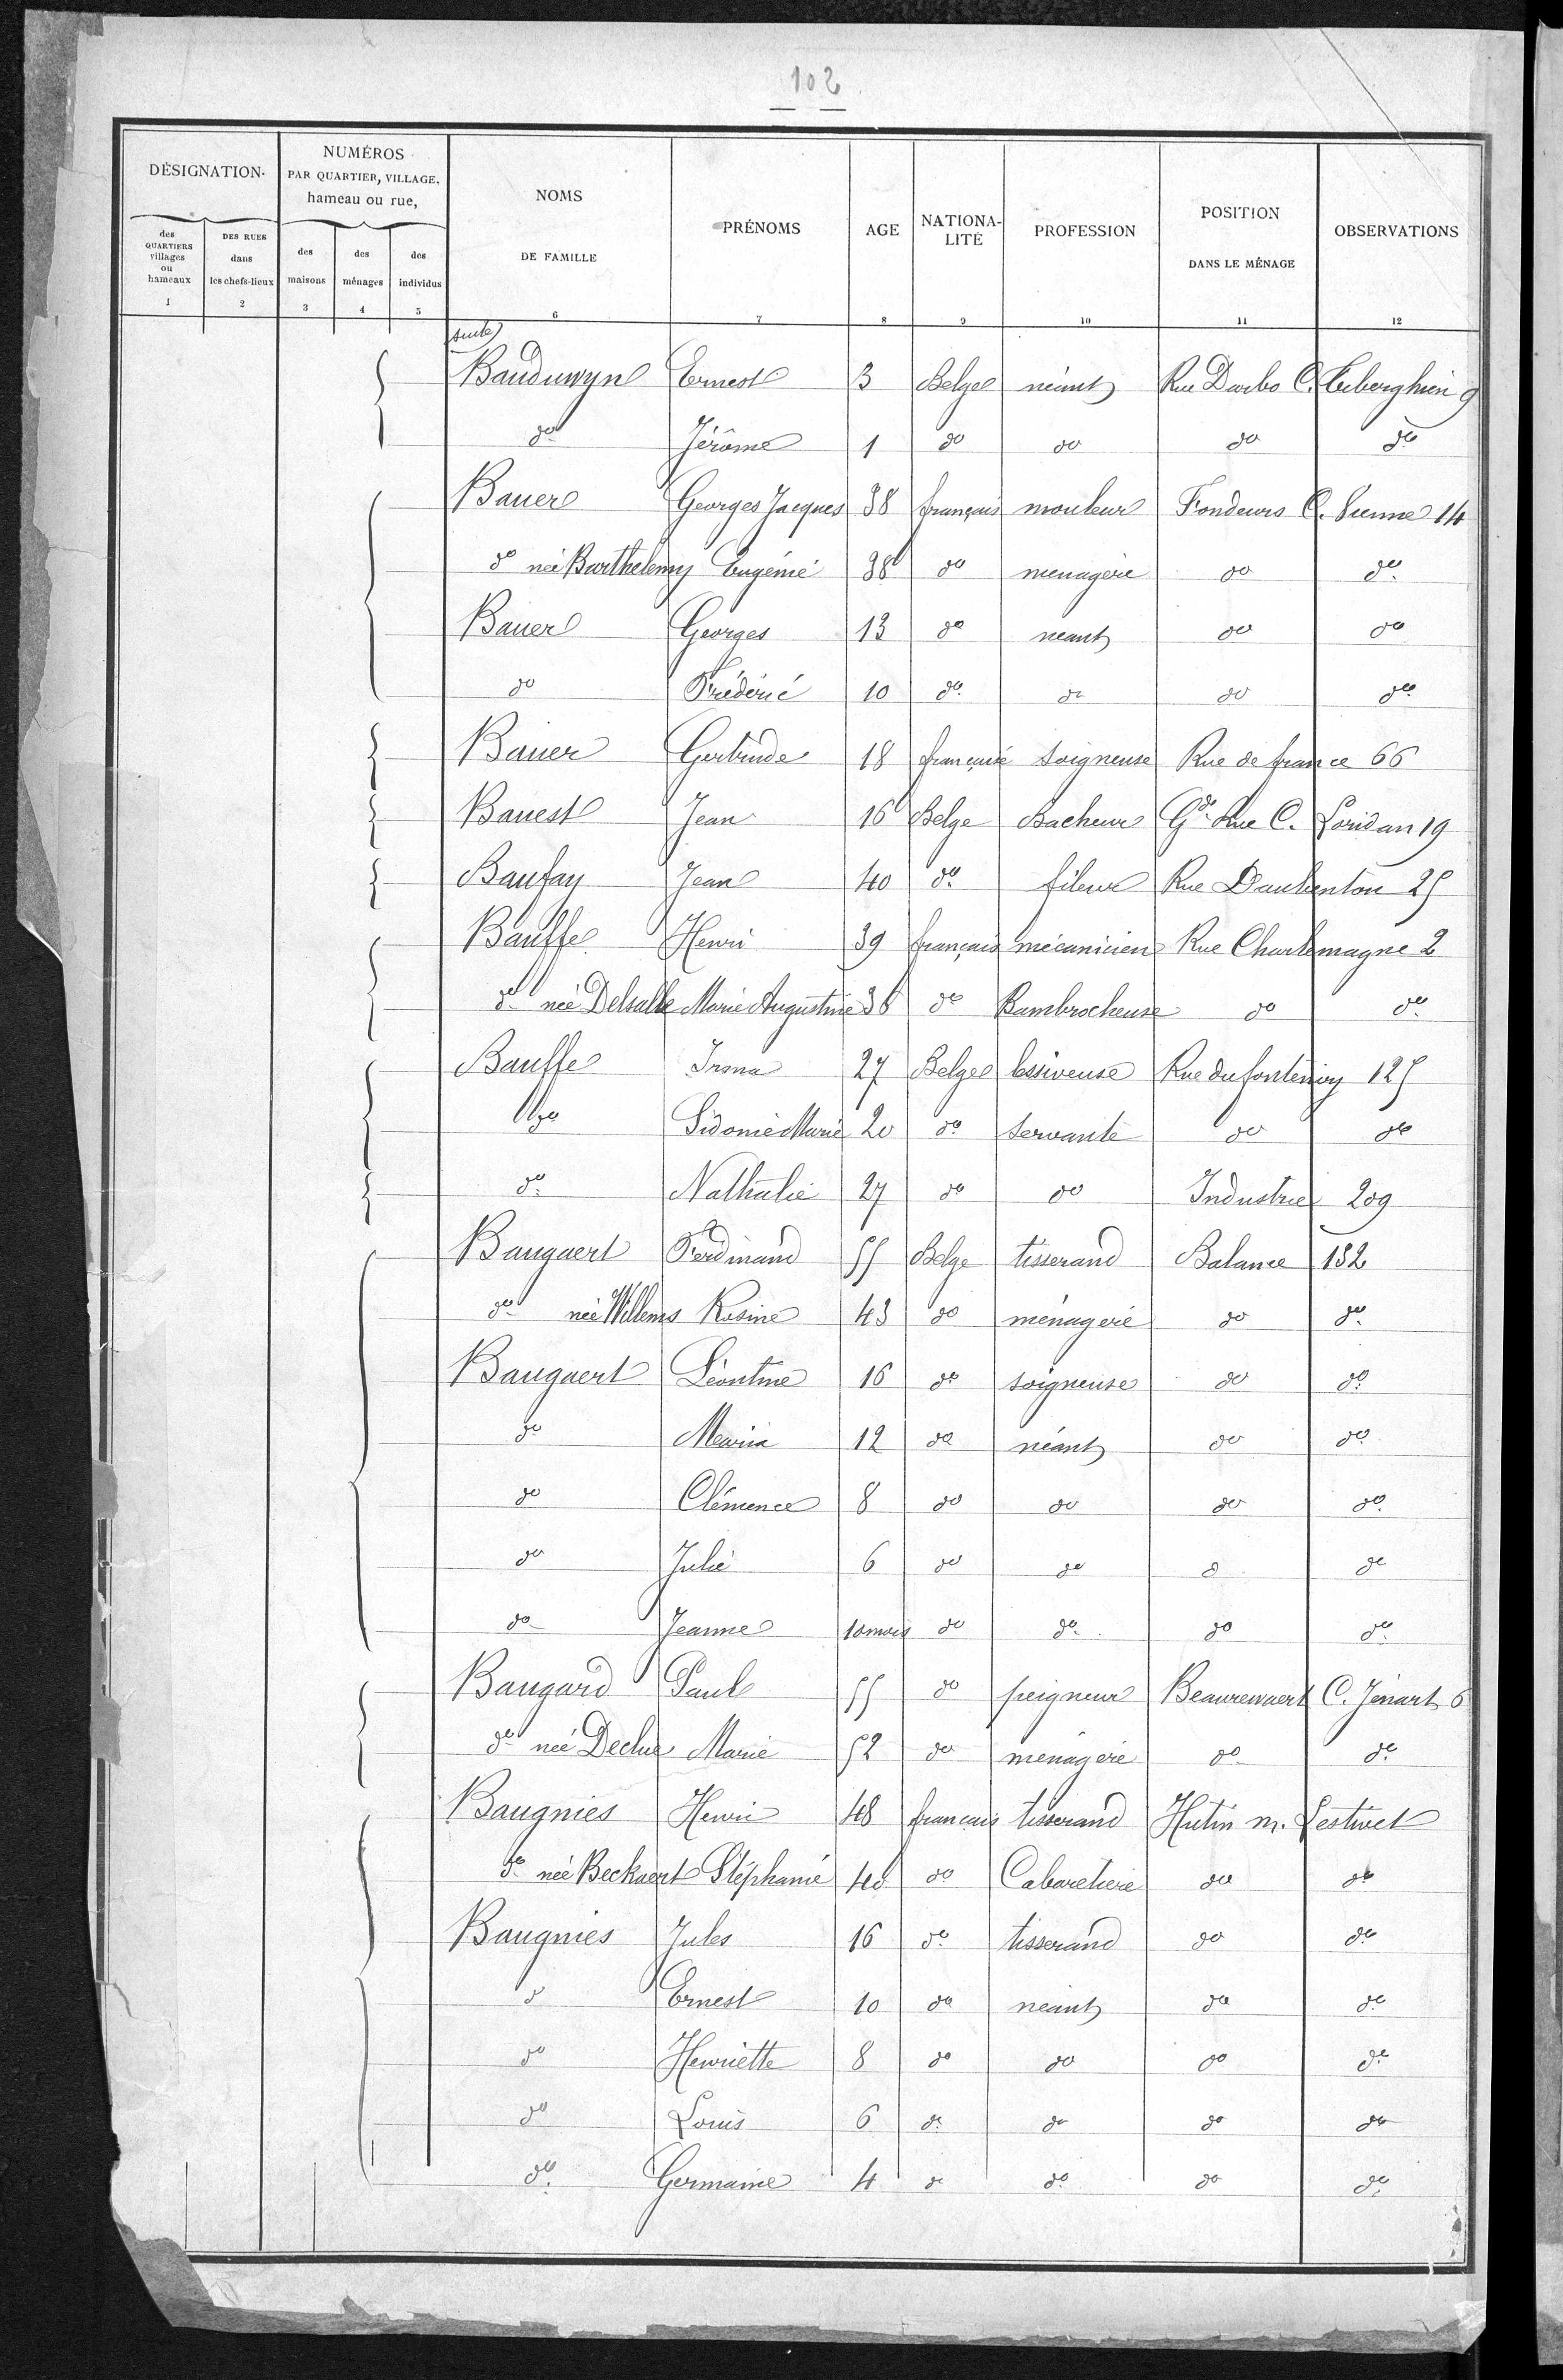 102
DÉSIGNATION
NUMÉROS
PAR QUARTIER, VILLAGE,
hameau ou rue,
NOMS
DE FAMILLE
PRÉNOMS
AGE
NATIONA-
LITÉ
PROFESSION
POSITION
DANS LE MÉNAGE
OBSERVATIONS
des
QUARTIERS
villages
ou
hameaux
DES RUES
dans
les chefs-lieux
des
maisons
des
ménages
des
individus
1 2 3 4 5 6 7 8 9 10 11 12
suite
Bauduwyn Ernest 3 Belge néant Rue Darbo C. Tiberghien 9
do Jérôme 1 do do do do
Bauer Georges Jacques 38 français mouleur Fondeurs C. 14
do née Barthelemy Eugénie 38 do menagère do do
Bauer Georges 13 do neant do do
do Frédéric 10 do do do do
Bauer Gertrude 18 française soigneuse Rue de france 66
Bauest Jean 16 Belge Bacheur Gde Rue C. Loridan 19
Baufay Jean 40 do fileur Rue Daubenton 25
Bauffe Henri 39 français mécanicien Rue Charlemagne 2
do née Delsalle Marie Augustine 36 do Bambrocheuse do do
Bauffe Irma 27 Belge lessiveuse Rue du fontenoy 125
do Sidonie Marie 20 do servante do do
do Nathalie 27 do do Industrie 209
Baugaert Ferdinand 55 Belge tisserand Balance 132
do née Willems Rosine 43 do ménagère do do
Baugaert Léontine 16 do soigneuse do do
do Maria 12 do néant do do
do Clémence 8 do do do do
do Julie 6 do do d do
do Jeanne 10 mois do do do do
Baugard Paul 55 do peigneur Beaurewaert C. Jénart 6
do née Declue Marie 52 do ménagère do do
Baugnies Henri 48 francais tisserand Hutin m. Lestivet
do née Beckaert Stéphanie 40 do Cabaretière do do
Baugnies Jules 16 do tisserand do do
d Ernest 10 do neant do do
do Henriette 8 do do do do
do Louis 6 do do do do
do Germaine 4 do do do do